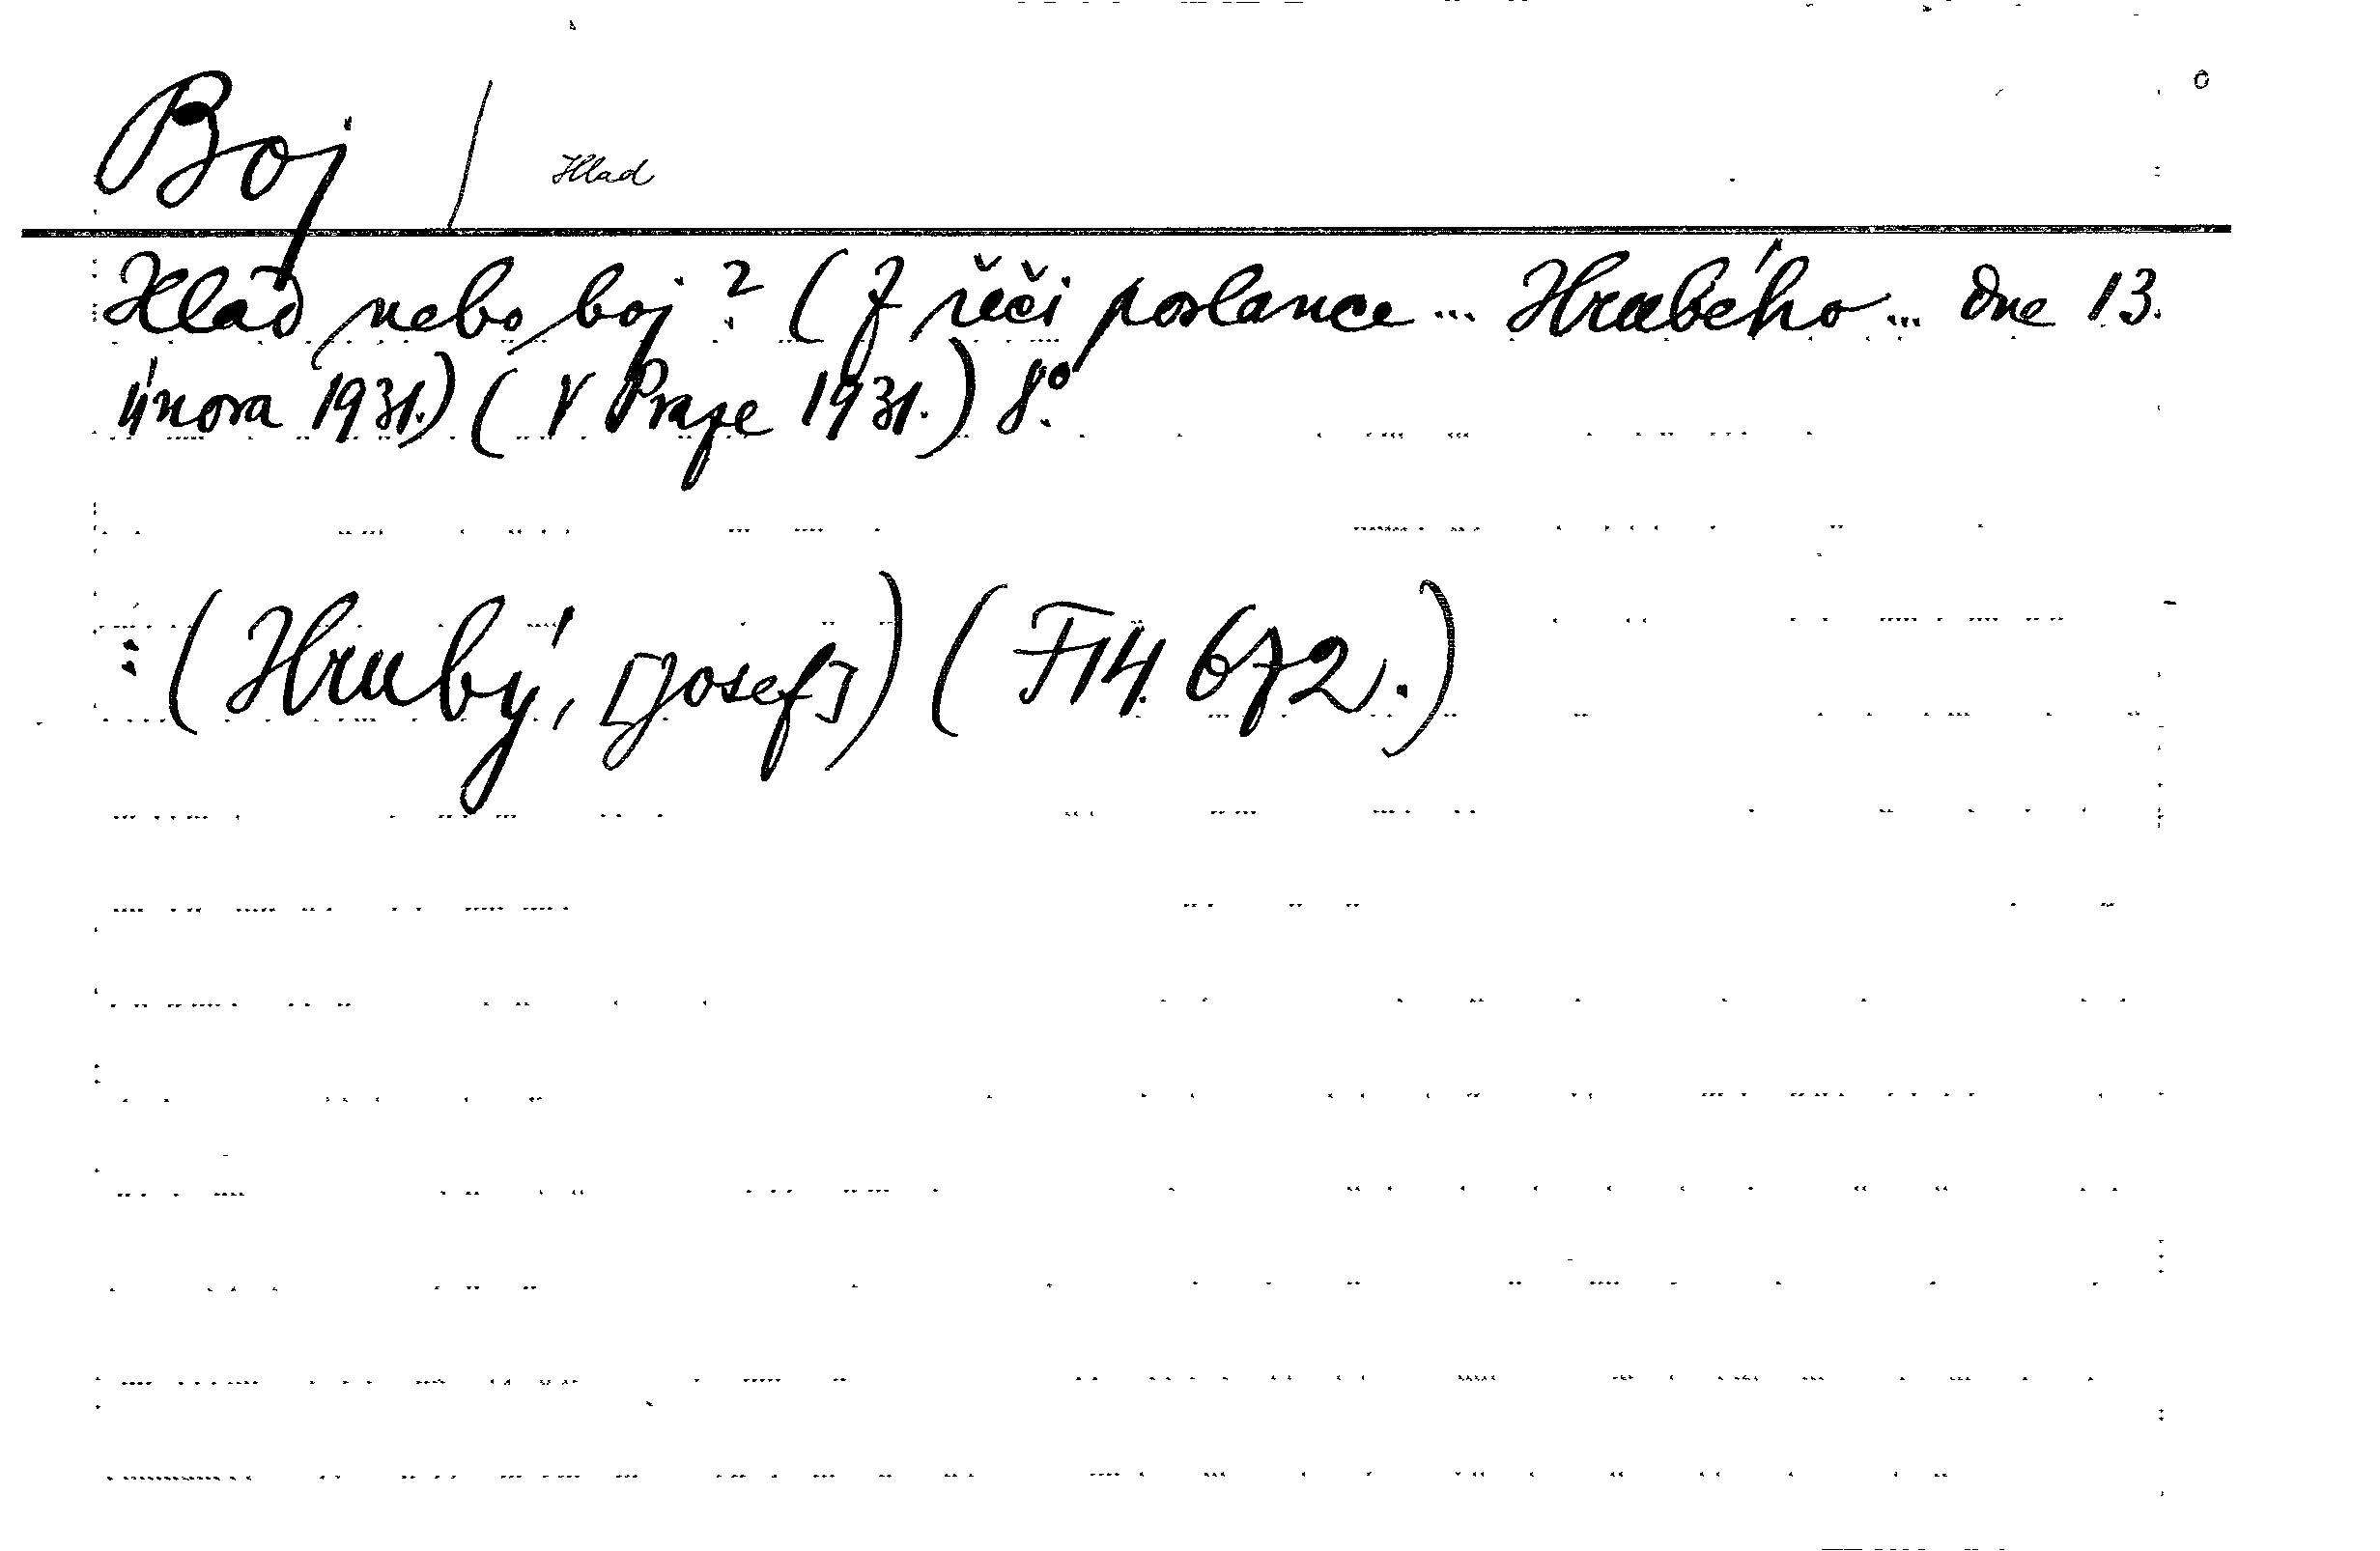 Boj / Hlad
Hlad nebo boj? (Z řeči poslance... Hrubého... dne 13.
února 1931.) (V Praze 1931.) 8°.
: (Hrubý, [Josef]) (F14.672.)